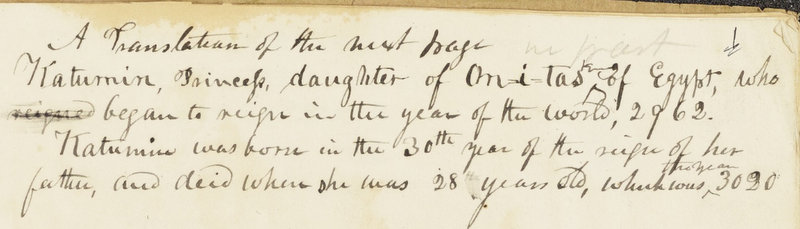 A Translation of the next page in part
Katumin, Princess, daughter of On-i-tas of Egypt, who
reigned began to reign in the year of the world, 2962.
Katumin was born in the 30th year of the reign of her
father, and deid when she was 28 years old, which was, the year 3020